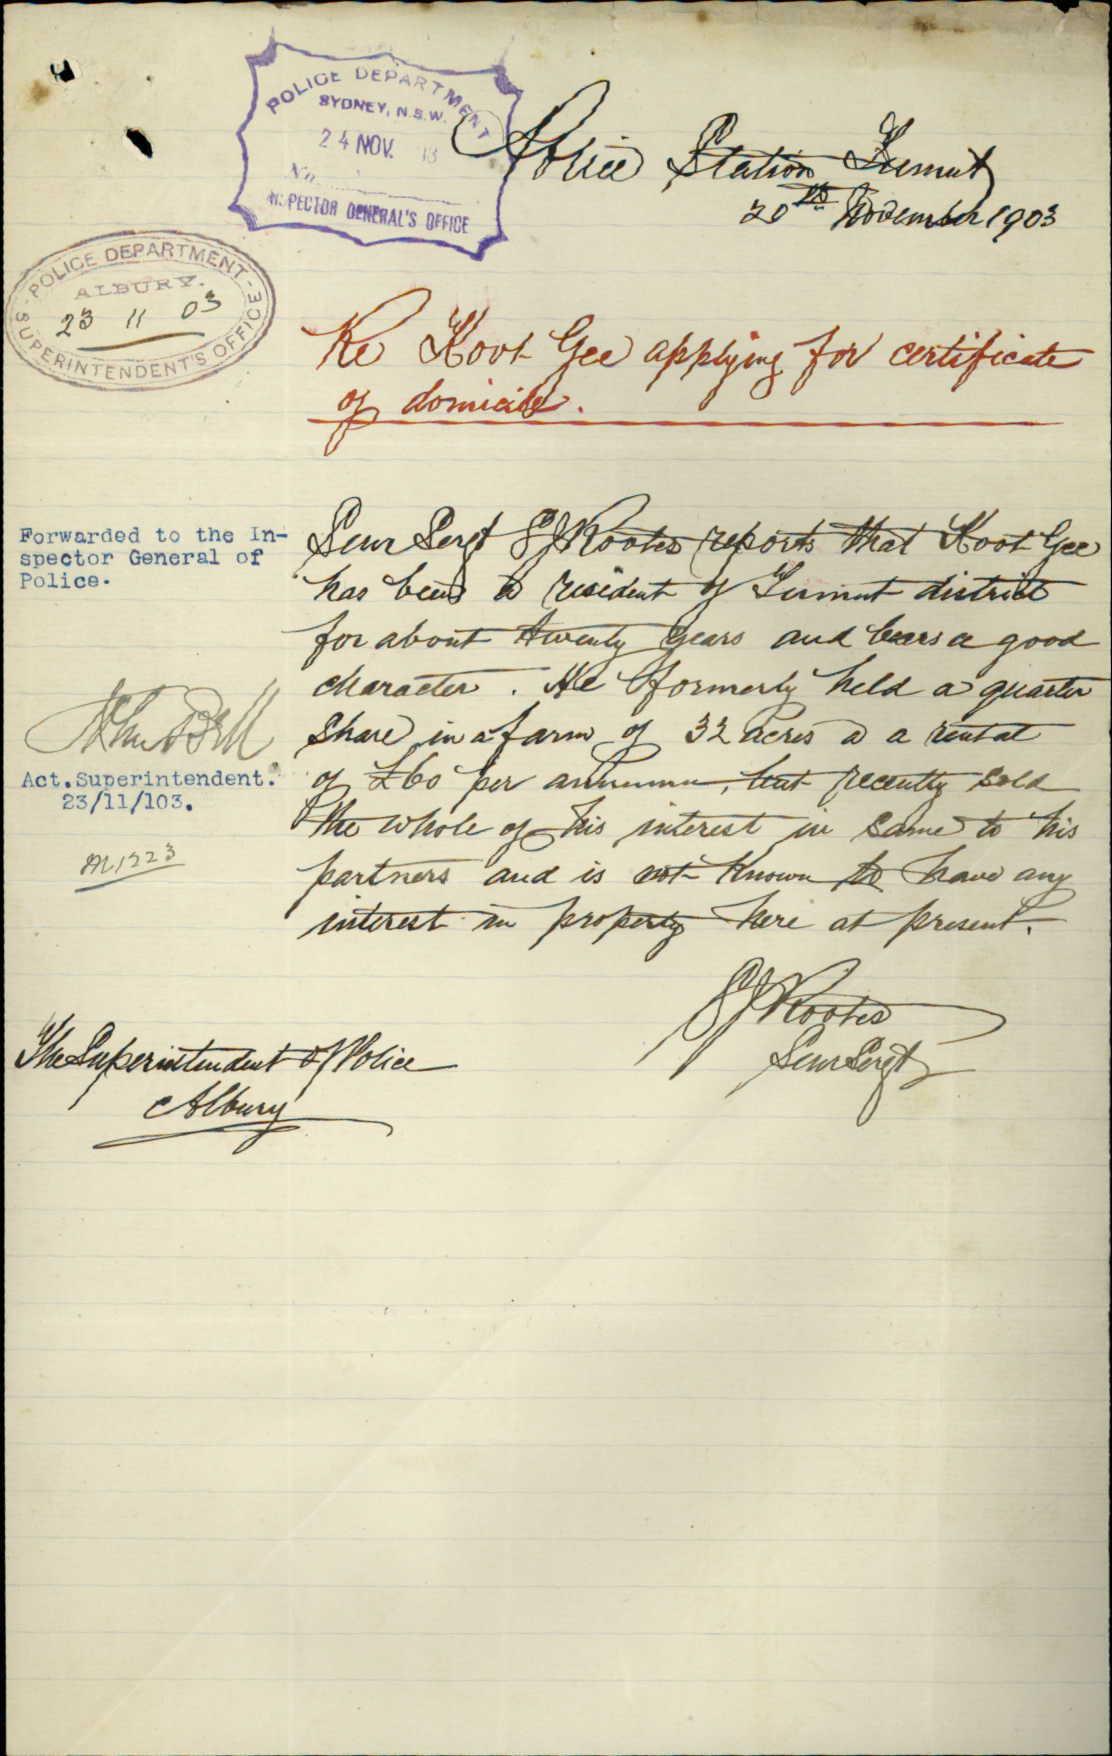 POLICE DEPARTMENT
SYDNEY, N.S.W.
24 NOV.
No
INSPECTOR GENERAL'S OFFICE
Police Station Tumut
20th November 1903
POLICE DEPARTMENT
ALBURY.
23 11 03
SUPERINTENDENT'S OFFICE
Re Hoot Gee applying for certificate
of domicile.
Forwarded to the In-
spector General of
Police.
Senr Sergt Rootes reports that Hoot Gee
has been a resident of Tumut district
for about twenty years and bears a good
character. He formerly held a quarter
share in a farm of 32 acres a a rental
of £60 per annum, but recently sold
the whole of his interest in same to his
partners and is not known to have any
interest in property here at present.
Act. Superintendent.
23/11/103.
Rootes
Senr Sergt
The Superintendent of Police
Albury